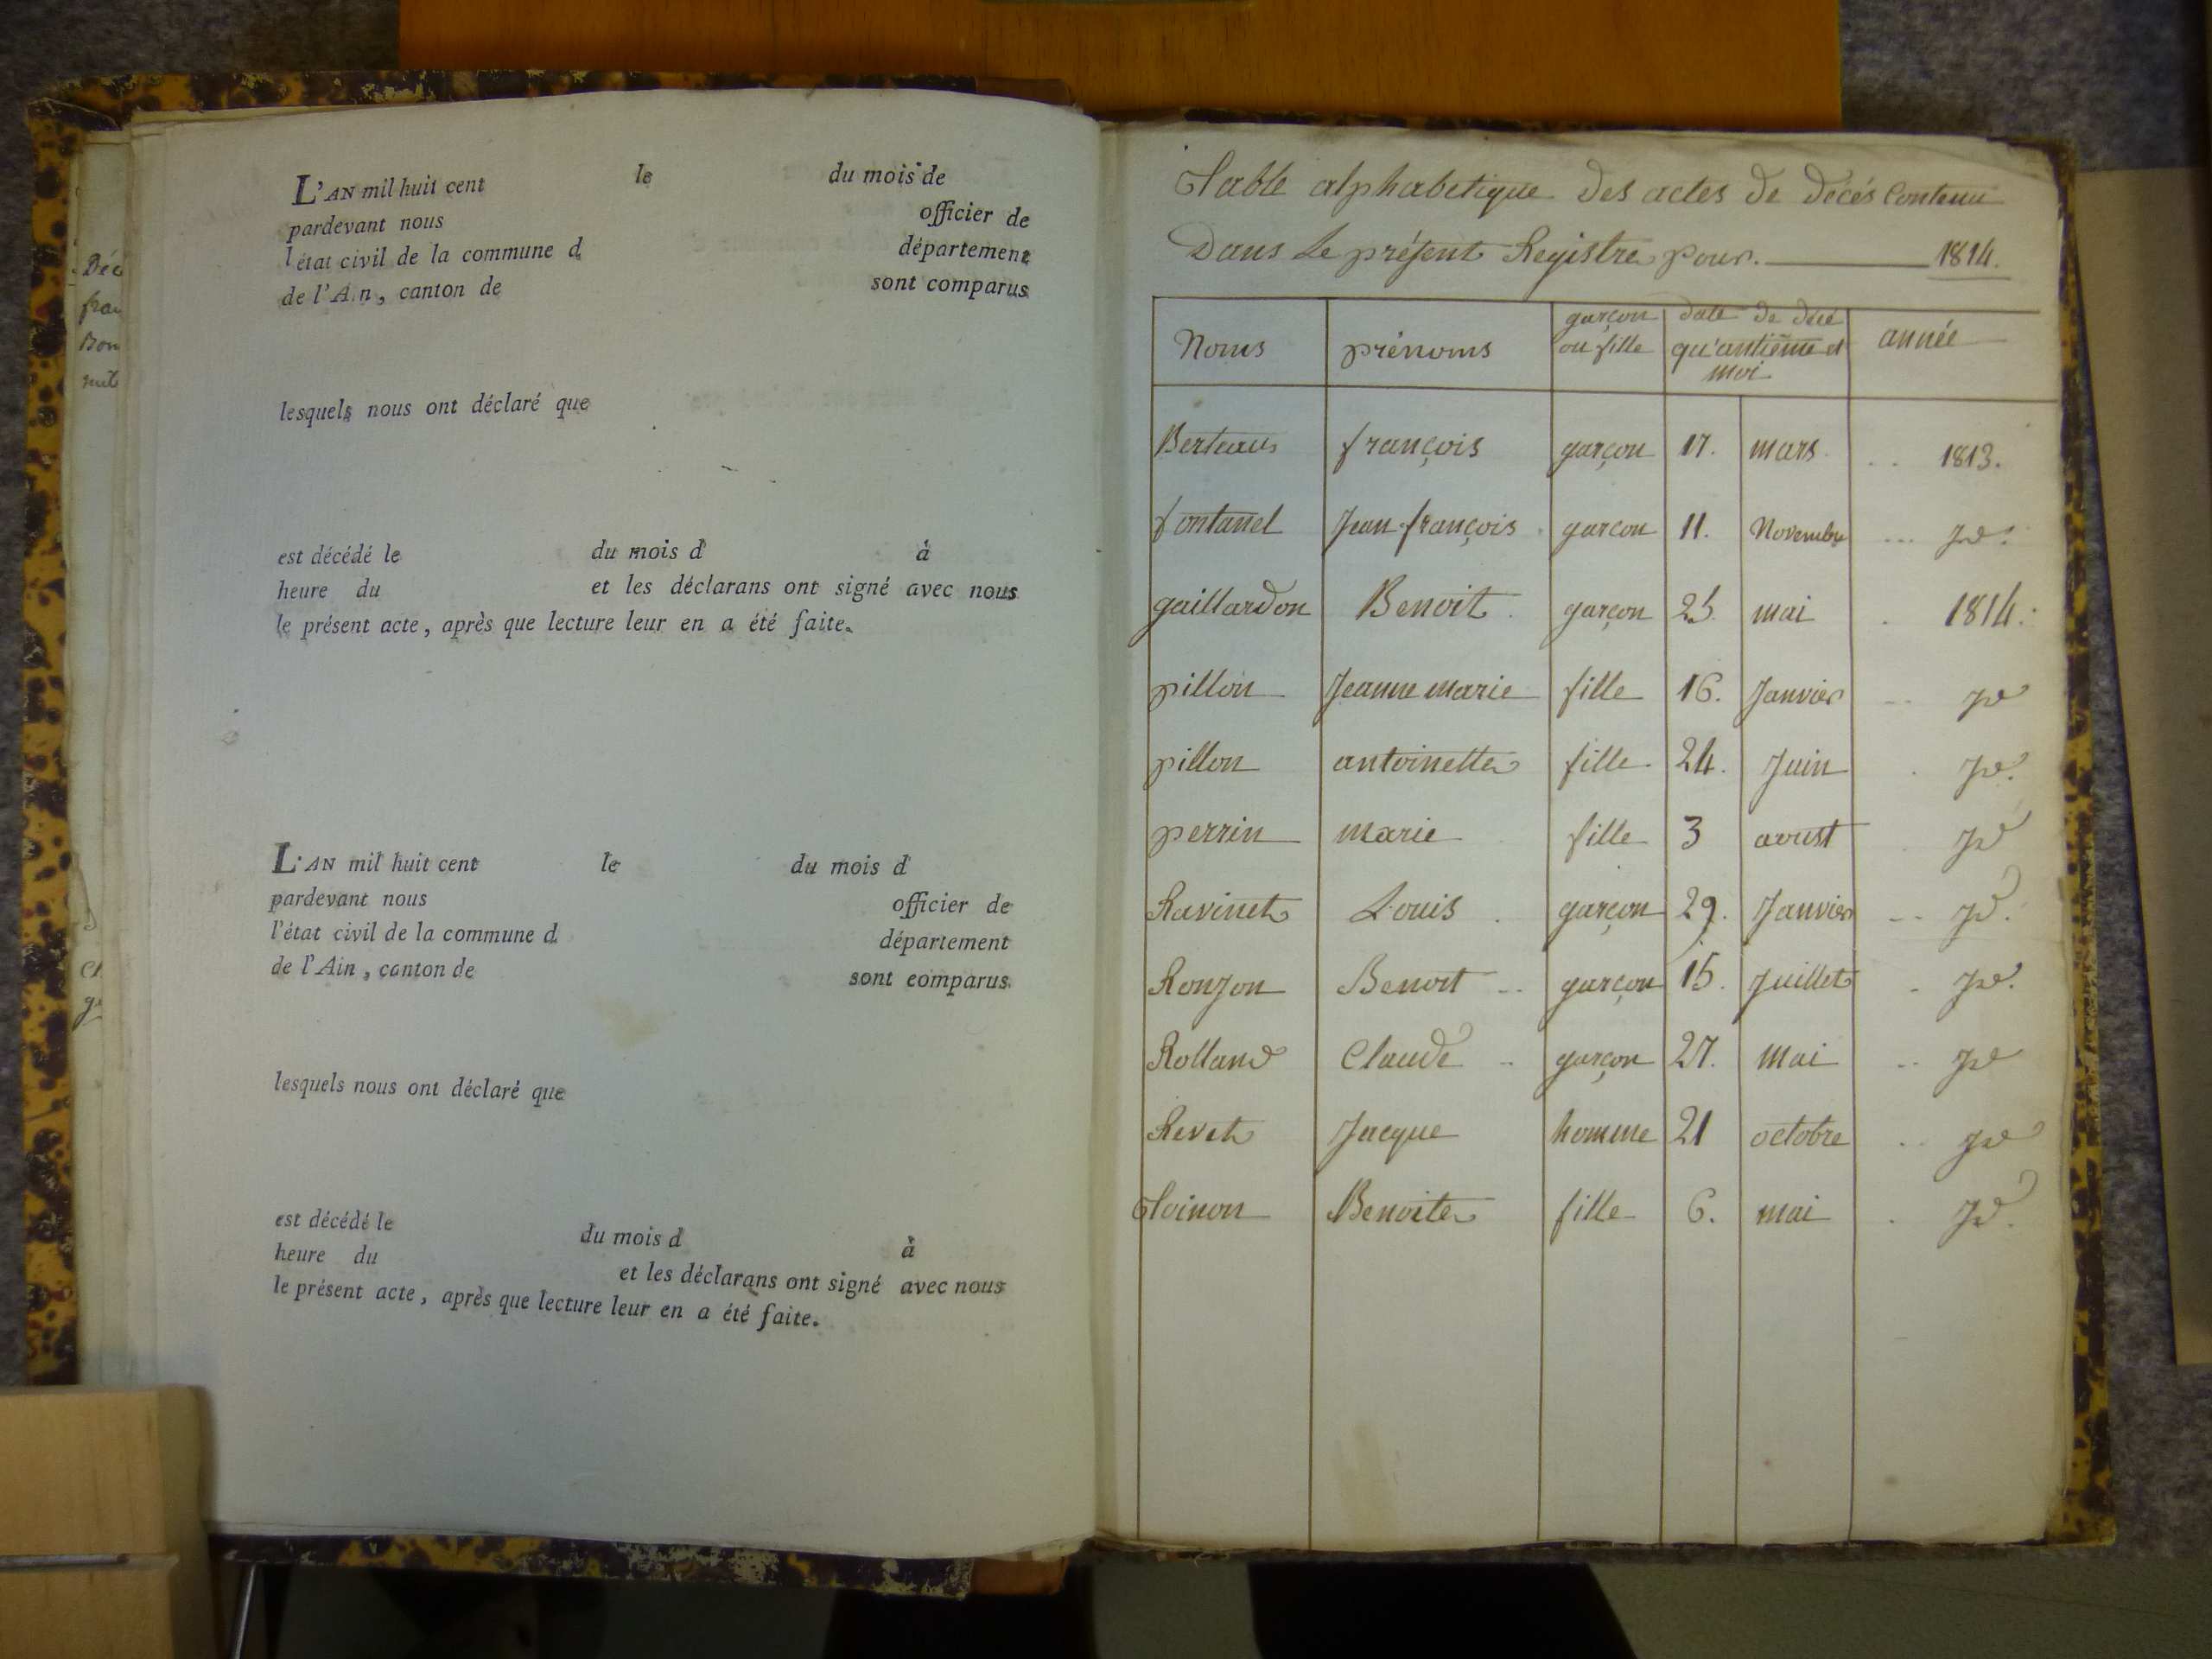 L'AN mil huit cent le du mois de
pardevant nous officier de
l'état civil de la commune d département
de l'Ain, canton de sont comparus
lesquels nous ont déclaré que
est décédé le du mois d à
heure du et les déclarans ont signé avec nous
le présent acte, après que lecture leur en a été faite.
L'AN mil huit cent le du mois d
pardevant nous officier de
l'état civil de la commune d département
de l'Ain, canton de sont comparus
lesquels nous ont déclaré que
est décédé le du mois d à
heure du et les déclarans ont signé avec nous
le présent acte, après que lecture leur en a été faite.
Table alphabetique des actes de decés Contenu
Dans Le présent Registre pour. 1814.
Noms prénoms garçon ou fille date de décé qu'antième et moi année
Berteaus françois garçon 17. mars .. 1813.
fontanel Jean françois garcon 11. Novembre ... Jd.
gaillardon Benoit garçon 25. mai . 1814.
pillon Jeanne marie fille 16. Janvier .. Jd
pillon antoinette fille 24. Juin . Jd.
perrin marie fille 3 aoust . Jd
Ravinet Louis garçon 29. Janvier .. Jd.
Ronjon Benoit .. garçon 15. Juillet . Jd.
Rolland Claude .. garçon 27. mai .. Jd
Revet Jacque homme 21 octobre .. Jd
Toinon Benoite fille 6. mai . Jd.